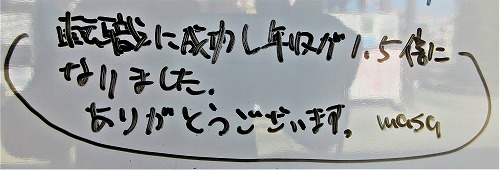 転職に成功し年収が1.5倍に
なりました.
ありがとうございます。masa